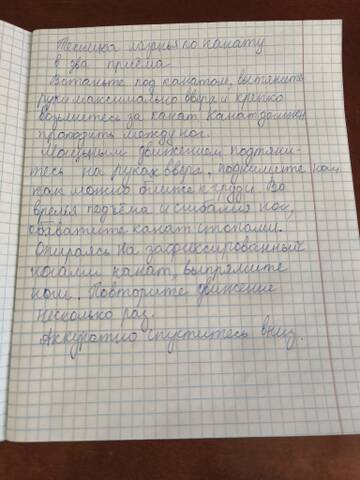 Техника лазанья по канату
в два приёма
Встаньте под канатом, вытяните
руки максимально вверх и крепко
возьмитесь за канат. Канат должен
проходить между ног.
Мощным движением подтяни-
тесь на руках вверх. поднимите ноги
как можно ближе к груди Во
время подъёма и сгибания ног,
обхватите канат стопами.
Опираясь на зафиксированный
ногами канат, выпрямите
ноги. Повторите движение
несколько раз.
Аккуратно спуститесь вниз.